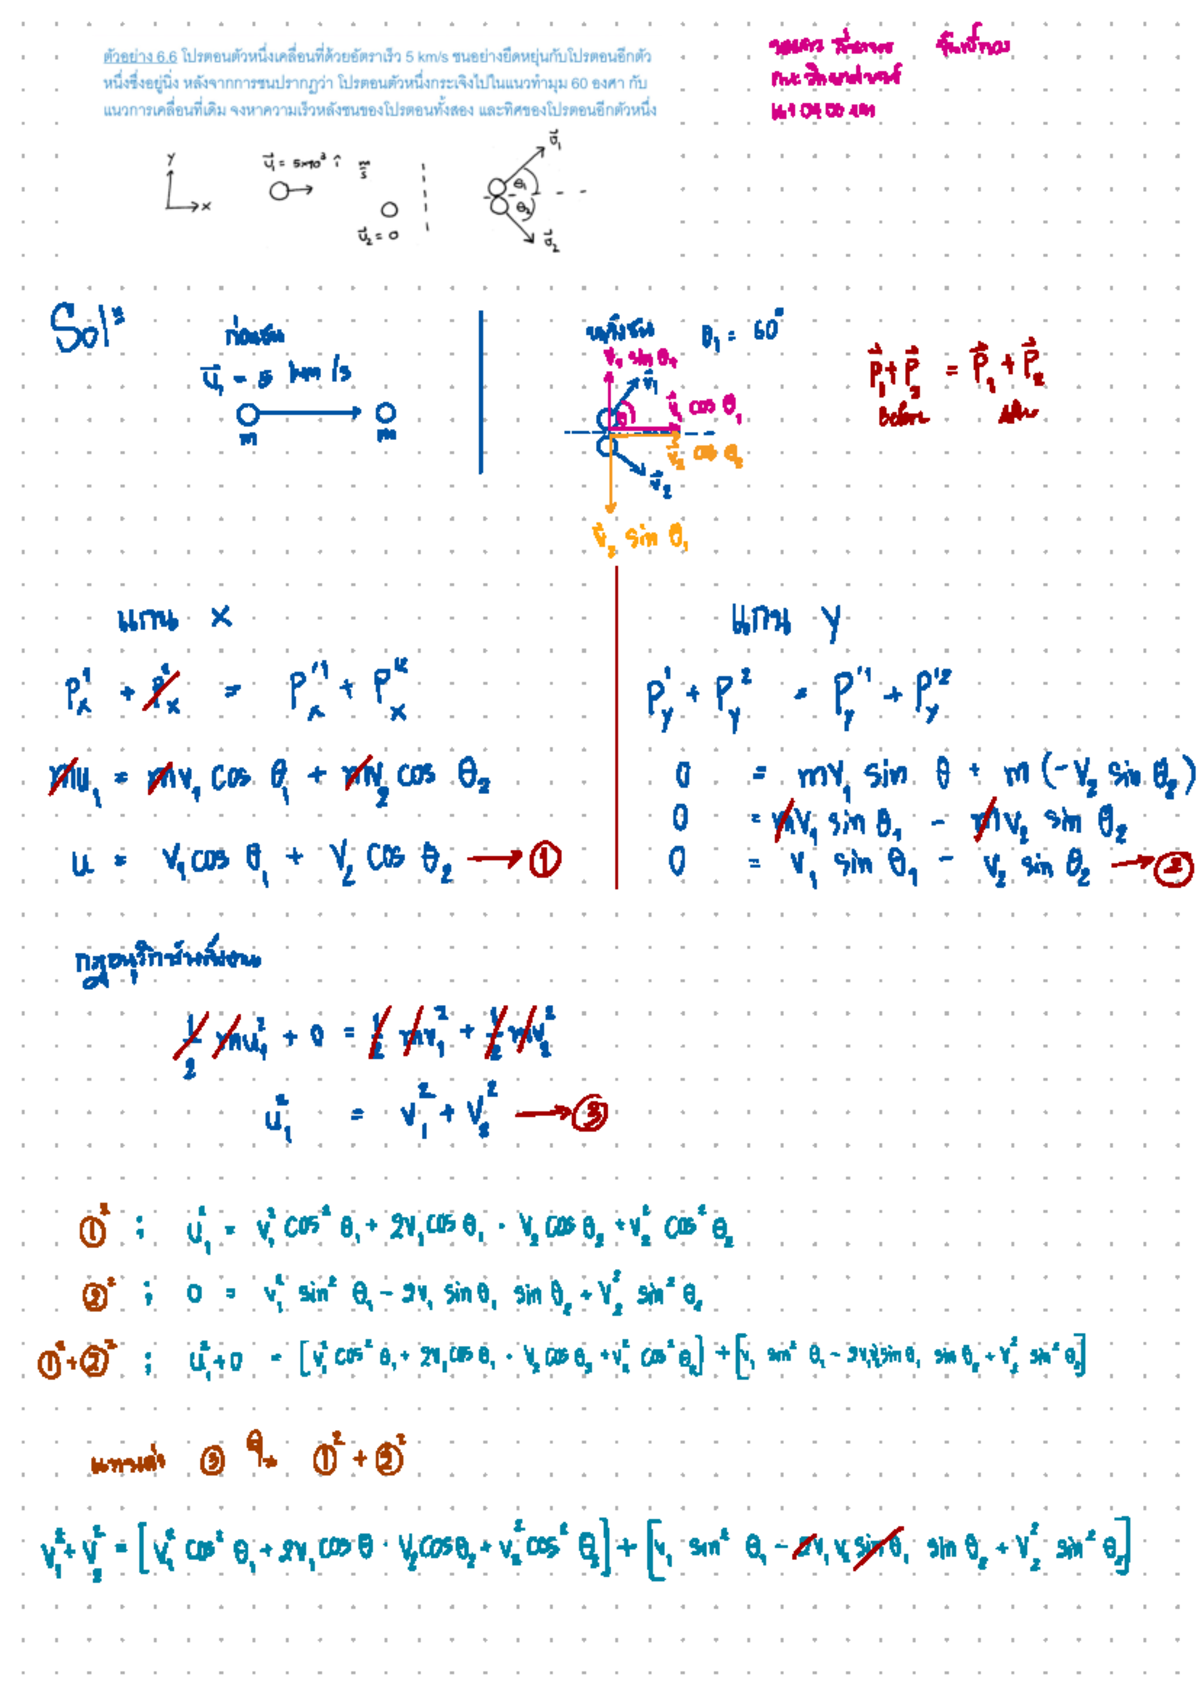 ตัวอย่าง 6.6 โปรตอนตัวหนึ่งเคลื่อนที่ด้วยอัตราเร็ว 5 km/s ชนอย่างยืดหยุ่นกับโปรตอนอีกตัว
หนึ่งซึ่งอยู่นิ่ง หลังจากการชนปรากฏว่า โปรตอนตัวหนึ่งกระเจิงไปในแนวทำมุม 60 องศา กับ
แนวการเคลื่อนที่เดิม จงหาความเร็วหลังชนของโปรตอนทั้งสอง และทิศของโปรตอนอีกตัวหนึ่ง
y
x
u⃗₁ = 5×10³ î m/s
u⃗₂ = 0
θ₁
θ₂
v⃗₁
v⃗₂
Solⁿ
ก่อนชน
u⃗₁ = 5 km/s
m m
หลังชน θ₁ = 60°
v⃗₁ sin θ₁
v⃗₁
v⃗₁ cos θ₁
v⃗₂ cos θ₂
v⃗₂
v⃗₂ sin θ₁
P⃗₁ + P⃗₂ = P⃗₁ + P⃗₂
Before After
แกน x
Pₓ¹ + Pₓ² = Pₓ'¹ + Pₓ'²
mu₁ = mv₁ cos θ₁ + mv₂ cos θ₂
u = v₁ cos θ₁ + v₂ cos θ₂ → ①
แกน y
P_y¹ + P_y² = P_y'¹ + P_y'²
0 = mv₁ sin θ + m (-v₂ sin θ₂)
0 = mv₁ sin θ₁ - mv₂ sin θ₂
0 = v₁ sin θ₁ - v₂ sin θ₂ → ②
กฎอนุรักษ์พลังงาน
1/2 mu₁² + 0 = 1/2 mv₁² + 1/2 mv₂²
u₁² = v₁² + v₂² → ③
①² ; u₁² = v₁² cos² θ₁ + 2v₁ cos θ₁ · v₂ cos θ₂ + v₂² cos² θ₂
②² ; 0 = v₁² sin² θ₁ - 2v₁ sin θ₁ sin θ₂ + v₂² sin² θ₂
①² + ②² ; u₁² + 0 = [v₁² cos² θ₁ + 2v₁ cos θ₁ · v₂ cos θ₂ + v₂² cos² θ₂] + [v₁ sin² θ₁ - 2v₁v₂ sin θ₁ sin θ₂ + v₂² sin² θ₂]
แทนค่า ③ ใน ①² + ②²
v₁² + v₂² = [v₁² cos² θ₁ + 2v₁ cos θ · v₂ cos θ₂ + v₂² cos² θ₂] + [v₁ sin² θ₁ - 2v₁v₂ sin θ₁ sin θ₂ + v₂² sin² θ₂]